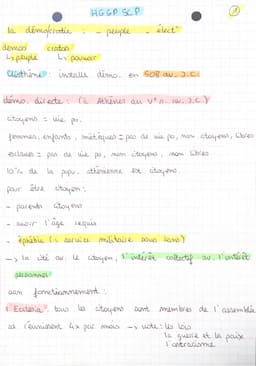 HGGP SCP
①
la démocratie : - peuple - élect°
demos cratos
↳ peuple ↳ pouvoir
Clisthène : installe démo. en 508 av. J.C.
démo. directe : (à Athènes au V° s. av. J.C.)
citoyens = vie po.
femmes, enfants, métèques = pas de vie po, non citoyens, libres
esclaves = pas de vie po, non citoyens, non libres
10% de la popu. athénienne est citoyens.
pour être citoyen :
- parents citoyens
- avoir l'âge requis
- éphébie (= service militaire
-> la cité av. le citoyen, l'intérêt collectif av. l'intérêt
personnel
son fonctionnement :
l'Ecclésia : tous les citoyens sont membres de l'assemblée
se réunissent 4x par mois -> vote : les lois
la guerre et la paix
l'ostracisme